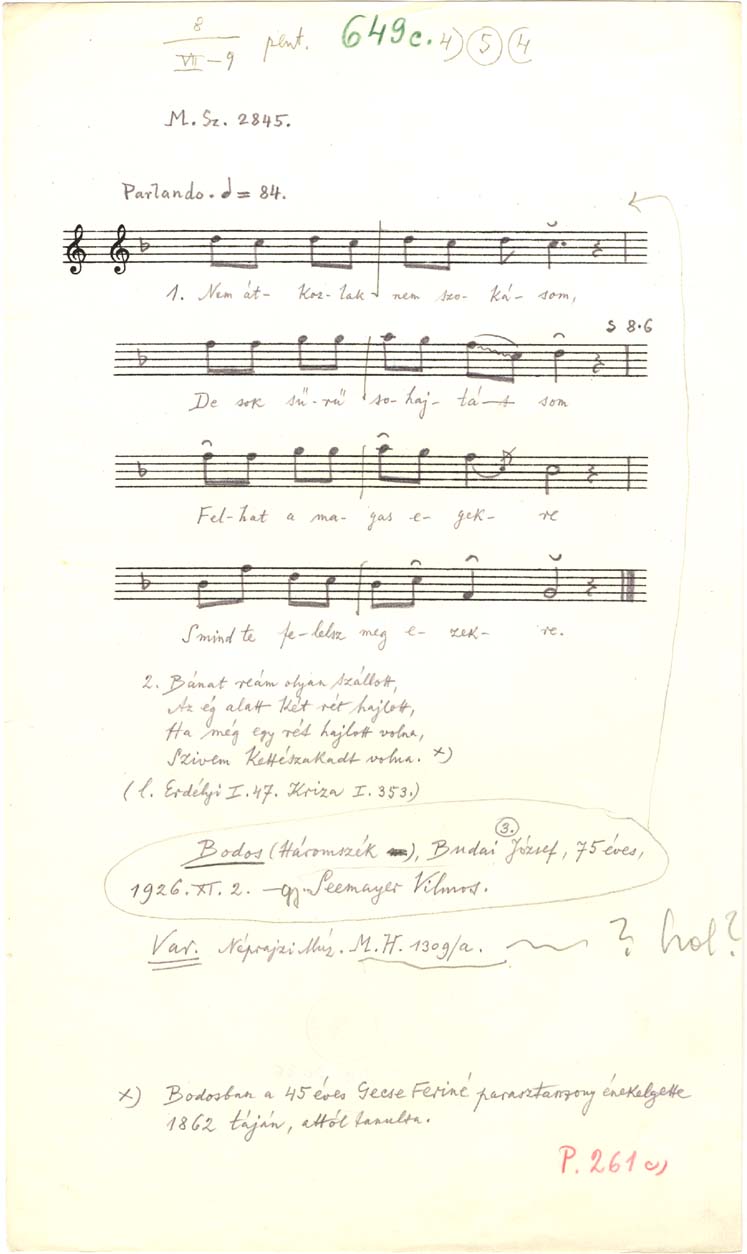 8
VII – 9 pent. 649c. 4) 5 4
M. Sz. 2845.
Parlando. = 84.
1. Nem át- koz- lak nem szo- ká- som,
S 8·6
De sok sü- rü so- haj- tá- s som
Fel- hat a ma- gas e- gek- re
S mind te fe- lelsz meg e- zek- re.
2. Bánat reám olyan szállott,
Az ég alatt két rét hajlott,
Ha még egy rét hajlott volna,
Szivem kettészakadt volna. x)
(l. Erdélyi I. 47. Kriza I. 353.)
3.
Bodos (Háromszék), Budai József, 75 éves,
1926. XI. 2. – gy. Seemayer Vilmos.
Var. Néprajzi Múz. M. H. 1309/a. ? hol?
x) Bodosban a 45 éves Gecse Feriné parasztasszony énekelgette
1862 táján, attól tanulta.
P. 261 a)